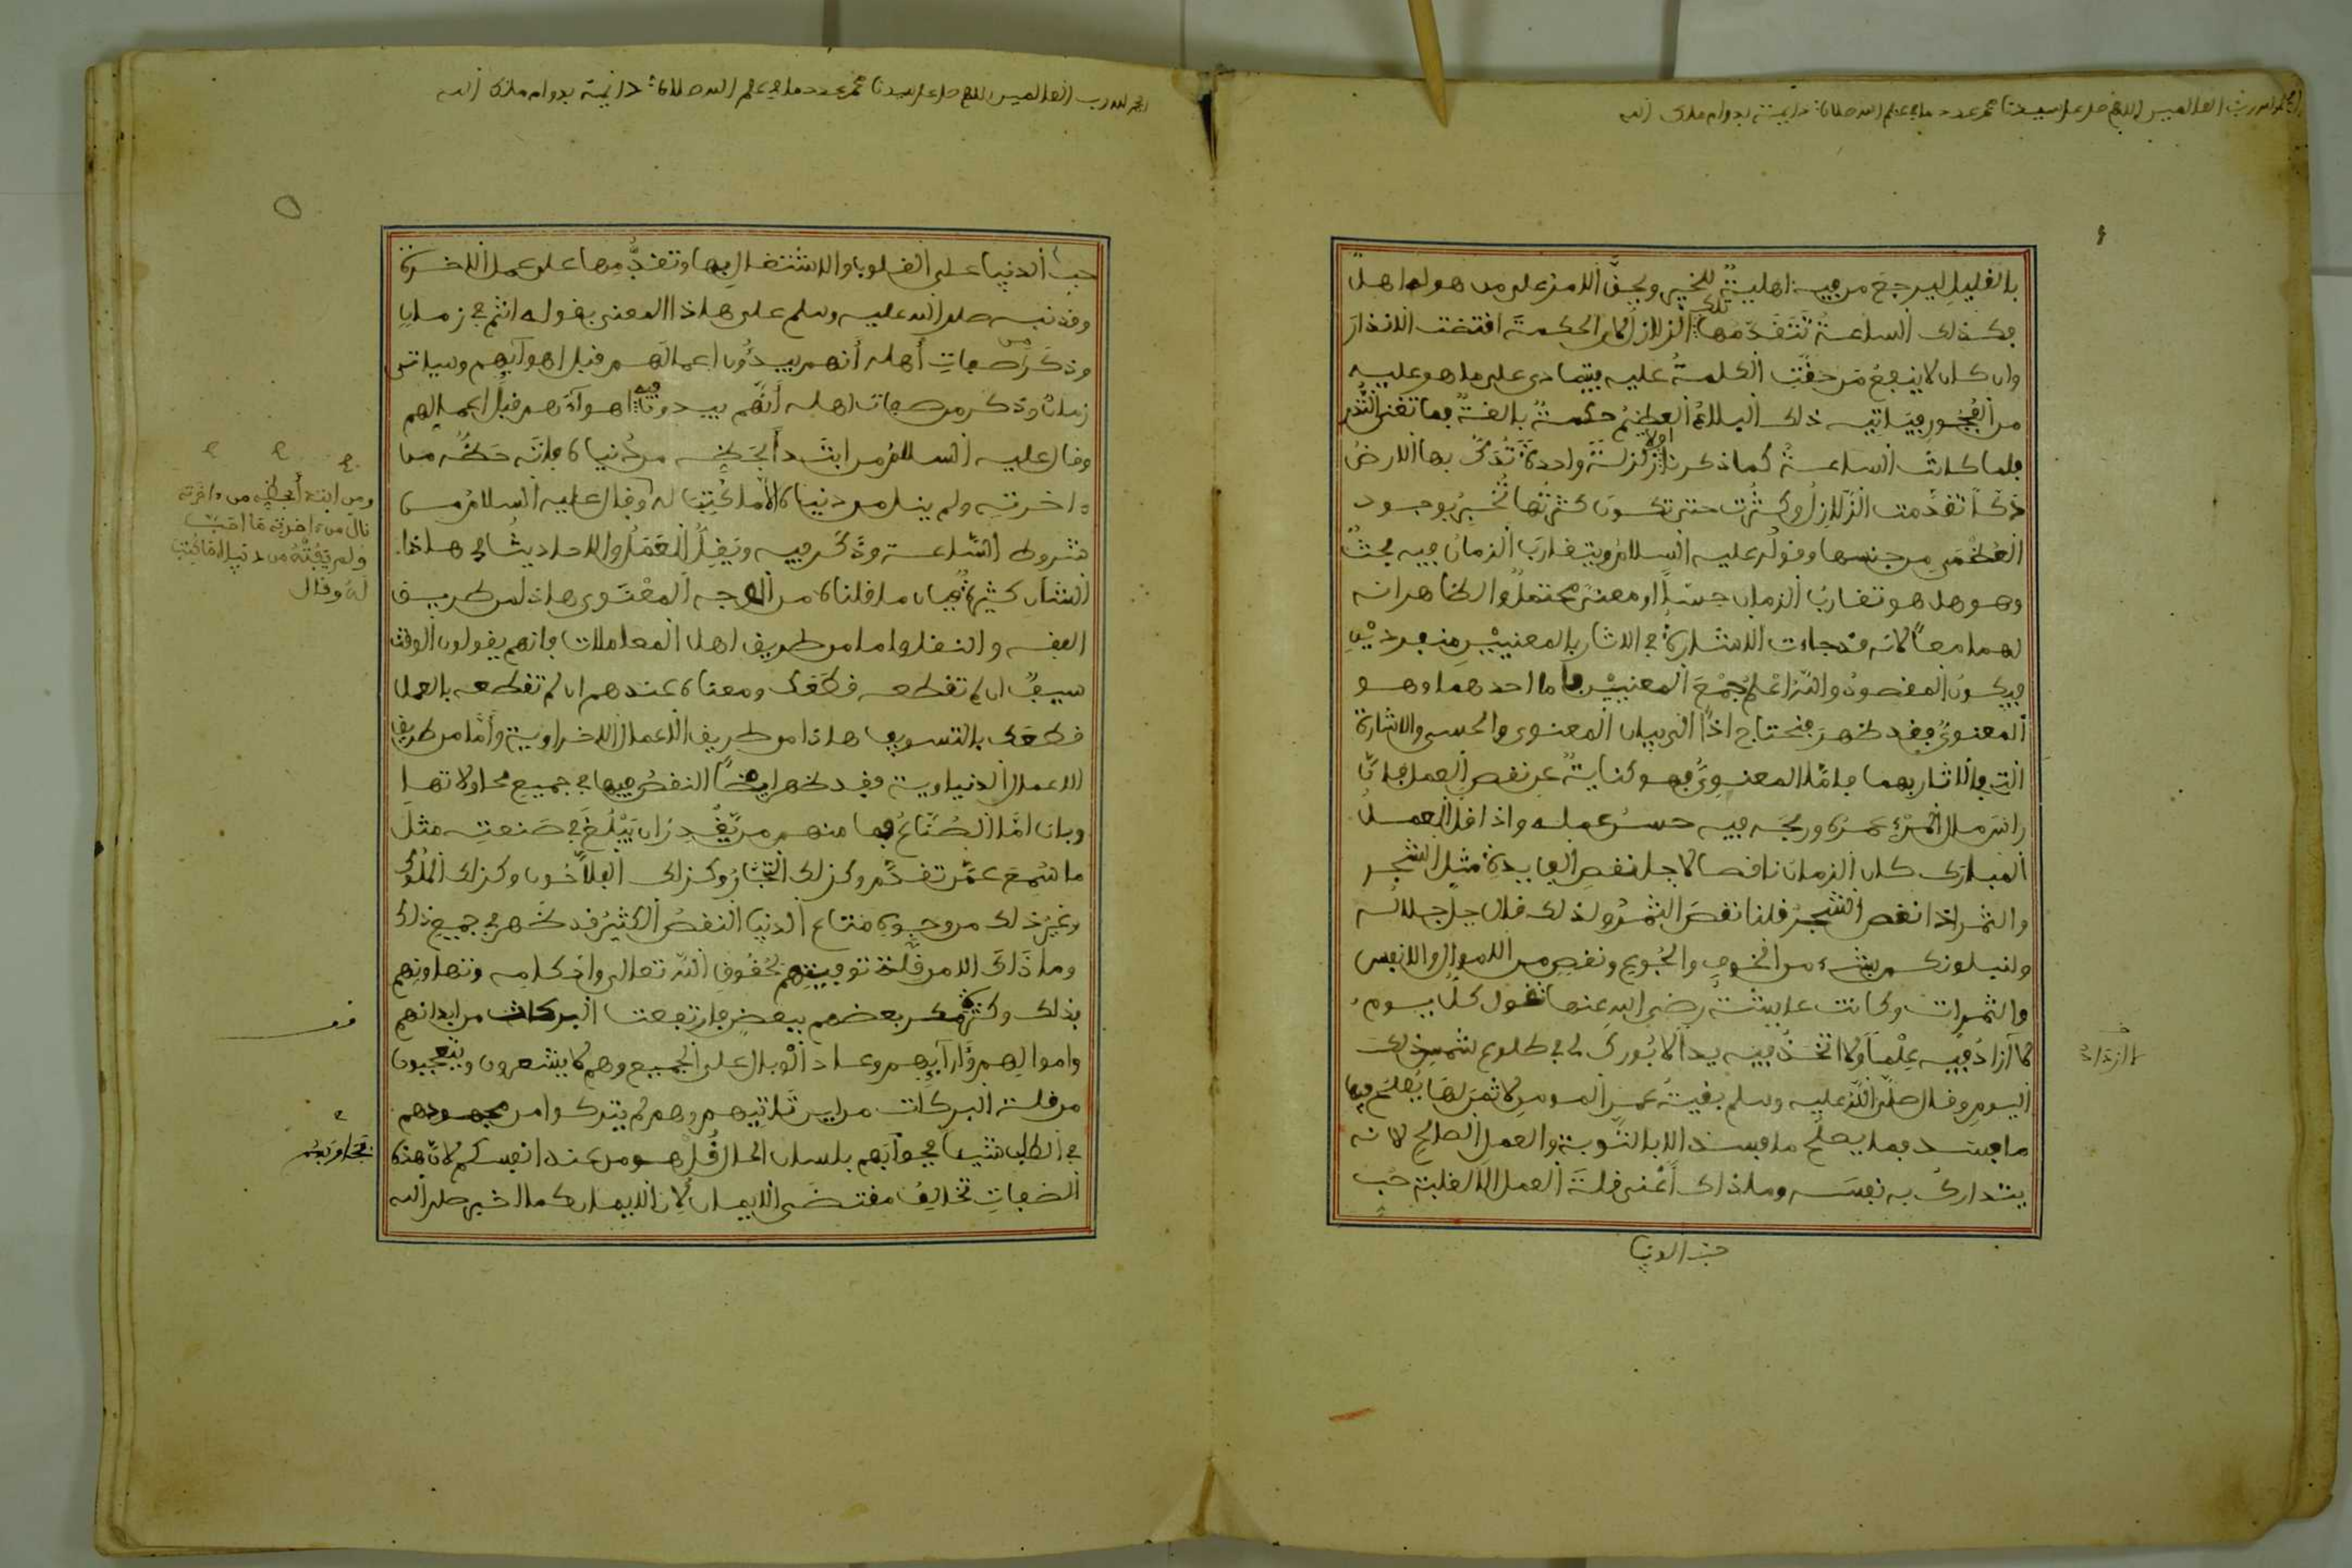 الحمد لله رب العالمين اللهم صل على سيدنا محمد عدد ما في علم الله صلاة دائمة بدوام ملك الله
بالقليل ليرجع من فيه اهلية للخير ويحق الامر على من هو له اهل
فكذلك الساعة تتقدمها تلك الزلازل لان الحكمة اقتضت الانذار
وان كان لا ينفع من حقت الكلمة عليه يتمادى على ما هو عليه
من الفجور فياتيه ذلك البلاء العظيم حكمة بالغة فما تغن النذر
فلما كانت الساعة كما ذكرنا اولا زلزلة واحدة تدك بها الارض
دكا تقدمت الزلازل وكثرت حتى تكون كثرتها تخبر بوجود
العظمى من جنسها وقوله عليه السلام ويتقارب الزمان فيه بحث
وهو هل هو تقارب الزمان حسا او معنى محتمل والظاهر انه
لهما معا لانه قد جاءت الاشارة في الاثار بالمعنيين منفردين
فيكون المقصود والله اعلم جمع المعنيين فاما احدهما وهو
المعنوي فقد ظهر فنحتاج اذا الى بيان المعنوي والحسي والاشارة
التي في الاثار بهما فاما المعنوي فهو كناية عن نقص العمل لان
راس مال المرء عمره وربحه فيه حسن عمله واذا قل العمل
المبارك كان الزمان ناقصا لاجل نقص الفايدة مثل الشجر
والثمر اذا نقص الشجر قلنا نقص الثمر ولذلك قال جل جلاله
ولنبلونكم بشيء من الخوف والجوع ونقص من الاموال والانفس
والثمرات وكانت عايشة رضي الله عنها تقول كل يوم
لا ازداد فيه علما ولا اتخذ فيه يدا لا بورك لي في طلوع شمس ذلك
اليوم وقال صلى الله عليه وسلم بقية عمر المومن لا ثمن لها يصلح فيها
ما فسد فما يصلح ما فسد الا بالتوبة والعمل الصالح لانه
يتدارك به نفسه وما ذاك اعني قلة العمل الا لغلبة حب
حب الدنيا
الحمد لله رب العالمين اللهم صل على سيدنا محمد عدد ما في علم الله صلاة دائمة بدوام ملك الله
حب الدنيا على القلوب والاشتغال بها وتقديمها على عمل الاخرة
وقد نبه صلى الله عليه وسلم على هاذا المعنى بقوله انتم في زمان
وذكر من صفات أهله أنهم يبدؤن اعمالهم قبل اهوآيهم وسياتي
زمان وذكر من صفات اهله أنهم يبدون فيه اهوآءهم قبل اعمالهم
وقال عليه السلام من ابتدأ بحظه من دنياه فاته حظه من
ءاخرته ولم ينل من دنياه الا ما كتب له وقال عليه السلام من
شروط الساعة وذكر فيه ويقل العمل والاحاديث في هاذا
الشان كثيرة فبان ما قلناه من الوجه المعنوي هاذا من طريق
الفقه والنقل واما من طريق اهل المعاملات فانهم يقولون الوقت
سيف ان لم تقطعه قطعك ومعناه عندهم ان لم تقطعه بالعمل
قطعك بالتسويف هاذا من طريق الاعمال الاخراوية وأما من طريق
الاعمال الدنياوية فقد ظهر ايضا النقص فيها في جميع محاولاتها
وبان اما الصناع فما منهم من يقدر ان يبلغ في صنعته مثل
ما سمع عمن تقدم وكذلك التجار وكذلك الفلاحون وكذلك الملوك
وغير ذلك من وجوه متاع الدنيا النقص الكثير قد ظهر في جميع ذلك
وما ذاك الا من قلة توفيتهم لحقوق الله تعالى واحكامه وتهاونهم
بذلك وكثرة مكر بعضهم ببعض فارتفعت البركات من ابدانهم
واموالهم وآرآيهم وعاد الوبال على الجميع وهم لا يشعرون ويتعجبون
من قلة البركات من اين تاتيهم وهم لم يتركوا من مجهودهم
في الطلب شيا فجوابهم بلسان الحال قل هو من عند انفسكم لان هذه
الصفات تخالف مقتضى الايمان لان الايمان كما اخبر صلى الله
ومن ابتدأ بحظه من ءاخرته
نال من ءاخرته ما احب
ولم يفته من دنياه ما كتب
له وقال